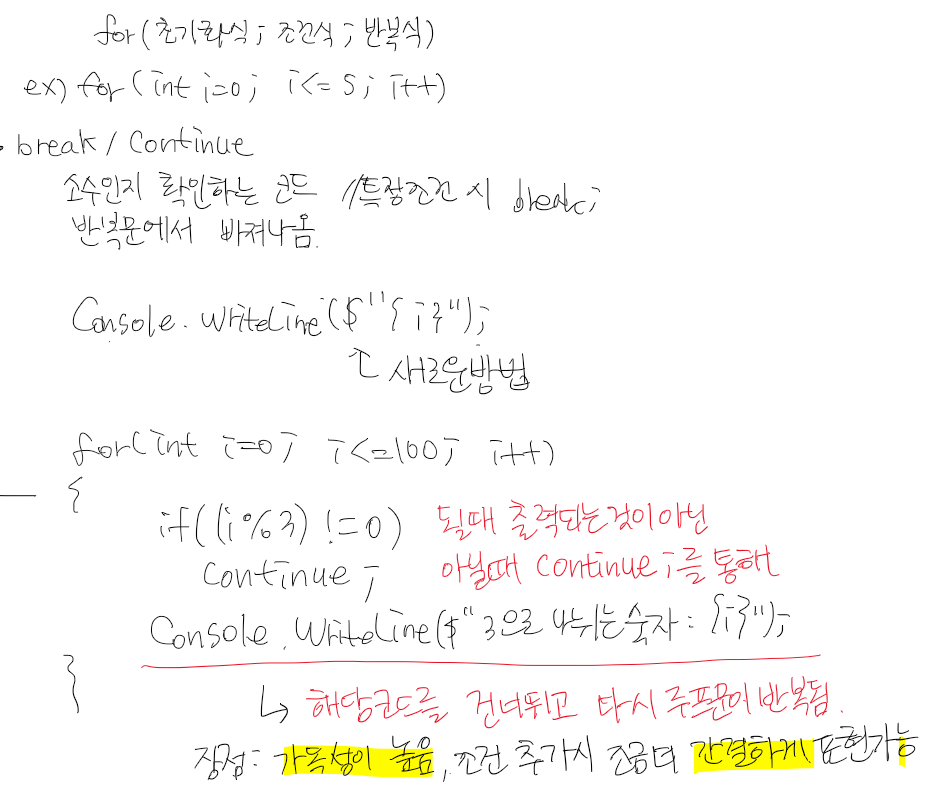 for(초기화식; 조건식; 반복식)
ex) for(int i=0; i<=5; i++)
• break / Continue
소수인지 확인하는 코드 //특정조건 시 break;
반복문에서 빠져나옴.
Console.WriteLine($"{i}");
↑ 새로운방법
for(int i=0; i<=100; i++)
{
if((i%3) !=0) 될때 출력되는것이 아닌
continue; 아닐때 continue;를 통해
Console.WriteLine($"3으로 나뉘는 숫자: {i}");
}
↳ 해당코드를 건너뛰고 다시 루프문이 반복됨.
장점: 가독성이 높음, 조건 추가시 조금더 간결하게 표현가능